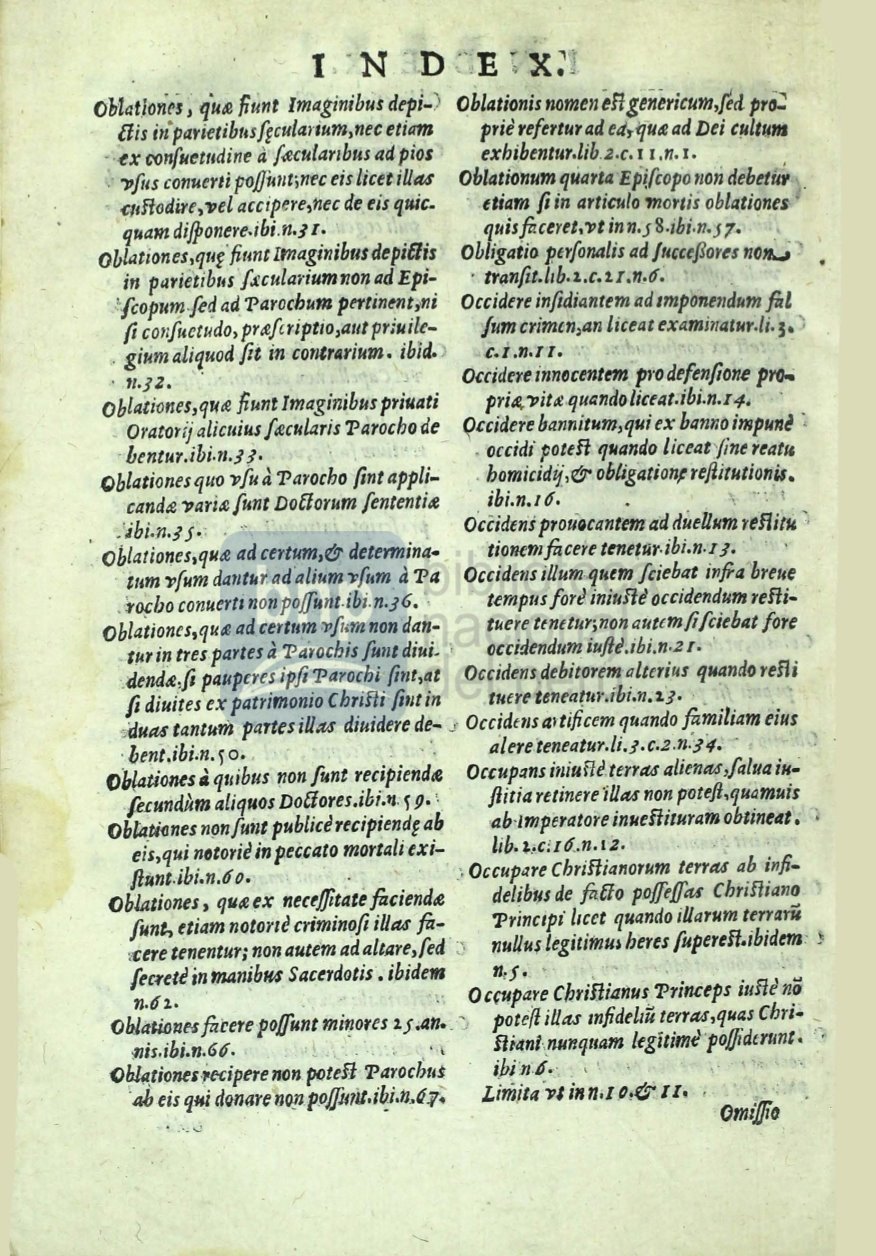 INDEX.
Oblationes, quæ fiunt Imaginibus depi-
ctis in parietibus sęcularium, nec etiam
ex consuetudine à sæcularibus ad pios
vsus conuerti possunt; nec eis licet illas
custodire, vel accipere, nec de eis quic-
quam disponere. ibi. n. 31.
Oblationes, quę fiunt Imaginibus depictis
in parietibus sæcularium non ad Epi-
scopum sed ad Parochum pertinent, ni
si consuetudo, præscriptio, aut priuile-
gium aliquod sit in contrarium. ibid.
n. 32.
Oblationes, quæ fiunt Imaginibus priuati
Oratorij alicuius sæcularis Parocho de
bentur. ibi. n. 33.
Oblationes quo vsu à Parocho sint appli-
candæ variæ sunt Doctorum sententiæ
ibi. n. 35.
Oblationes, quæ ad certum, & determina-
tum vsum dantur ad alium vsum à Pa
rocho conuerti non possunt. ibi. n. 36.
Oblationes, quæ ad certum vsum non dan-
tur in tres partes à Parochis sunt diui-
dendæ. si pauperes ipsi Parochi sint, at
si diuites ex patrimonio Christi sint in
duas tantum partes illas diuidere de-
bent. ibi. n. 50.
Oblationes à quibus non sunt recipiendæ
secundùm aliquos Doctores. ibi. n. 59.
Oblationes non sunt publicè recipiendę ab
eis, qui notoriè in peccato mortali exi-
stunt. ibi. n. 60.
Oblationes, quæ ex necessitate faciendæ
sunt, etiam notoriè criminosi illas fa-
cere tenentur; non autem ad altare, sed
secretè in manibus Sacerdotis. ibidem
n. 62.
Oblationes facere possunt minores 25. an.
nis. ibi. n. 66.
Oblationes recipere non potest Parochus
ab eis qui donare non possunt. ibi. n. 67.
Oblationis nomen est genericum, sed pro-
priè refertur ad ea, quæ ad Dei cultum
exhibentur. lib. 2. c. 11. n. 1.
Oblationum quarta Episcopo non debetur
etiam si in articulo mortis oblationes
quis faceret, vt in n. 58. ibi. n. 57.
Obligatio personalis ad successores non
transit. lib. 2. c. 21. n. 6.
Occidere insidiantem ad imponendum fal
sum crimen, an liceat examinatur. li. 3.
c. 1. n. 11.
Occidere innocentem pro defensione pro-
priæ vitæ quando liceat. ibi. n. 14.
Occidere bannitum, qui ex banno impunè
occidi potest quando liceat sine reatu
homicidij, & obligatione restitutionis.
ibi. n. 16.
Occidens prouocantem ad duellum restitu
tionem facere tenetur. ibi. n. 13.
Occidens illum quem sciebat infra breue
tempus forè iniustè occidendum resti-
tuere tenetur; non autem si sciebat fore
occidendum iustè. ibi. n. 21.
Occidens debitorem alterius quando resti
tuere teneatur. ibi. n. 23.
Occidens artificem quando familiam eius
alere teneatur. li. 3. c. 2. n. 34.
Occupans iniustè terras alienas, salua iu-
stitia retinere illas non potest, quamuis
ab Imperatore inuestituram obtineat.
lib. 2. c. 16. n. 12.
Occupare Christianorum terras ab infi-
delibus de facto possessas Christiano
Principi licet quando illarum terrarũ
nullus legitimus heres superest. ibidem
n. 5.
Occupare Christianus Princeps iustè nō
potest illas infideliũ terras, quas Chri-
stiani nunquam legitimè possiderunt.
ibi n 6.
Limita vt in n. 10. & 11.
Omissio